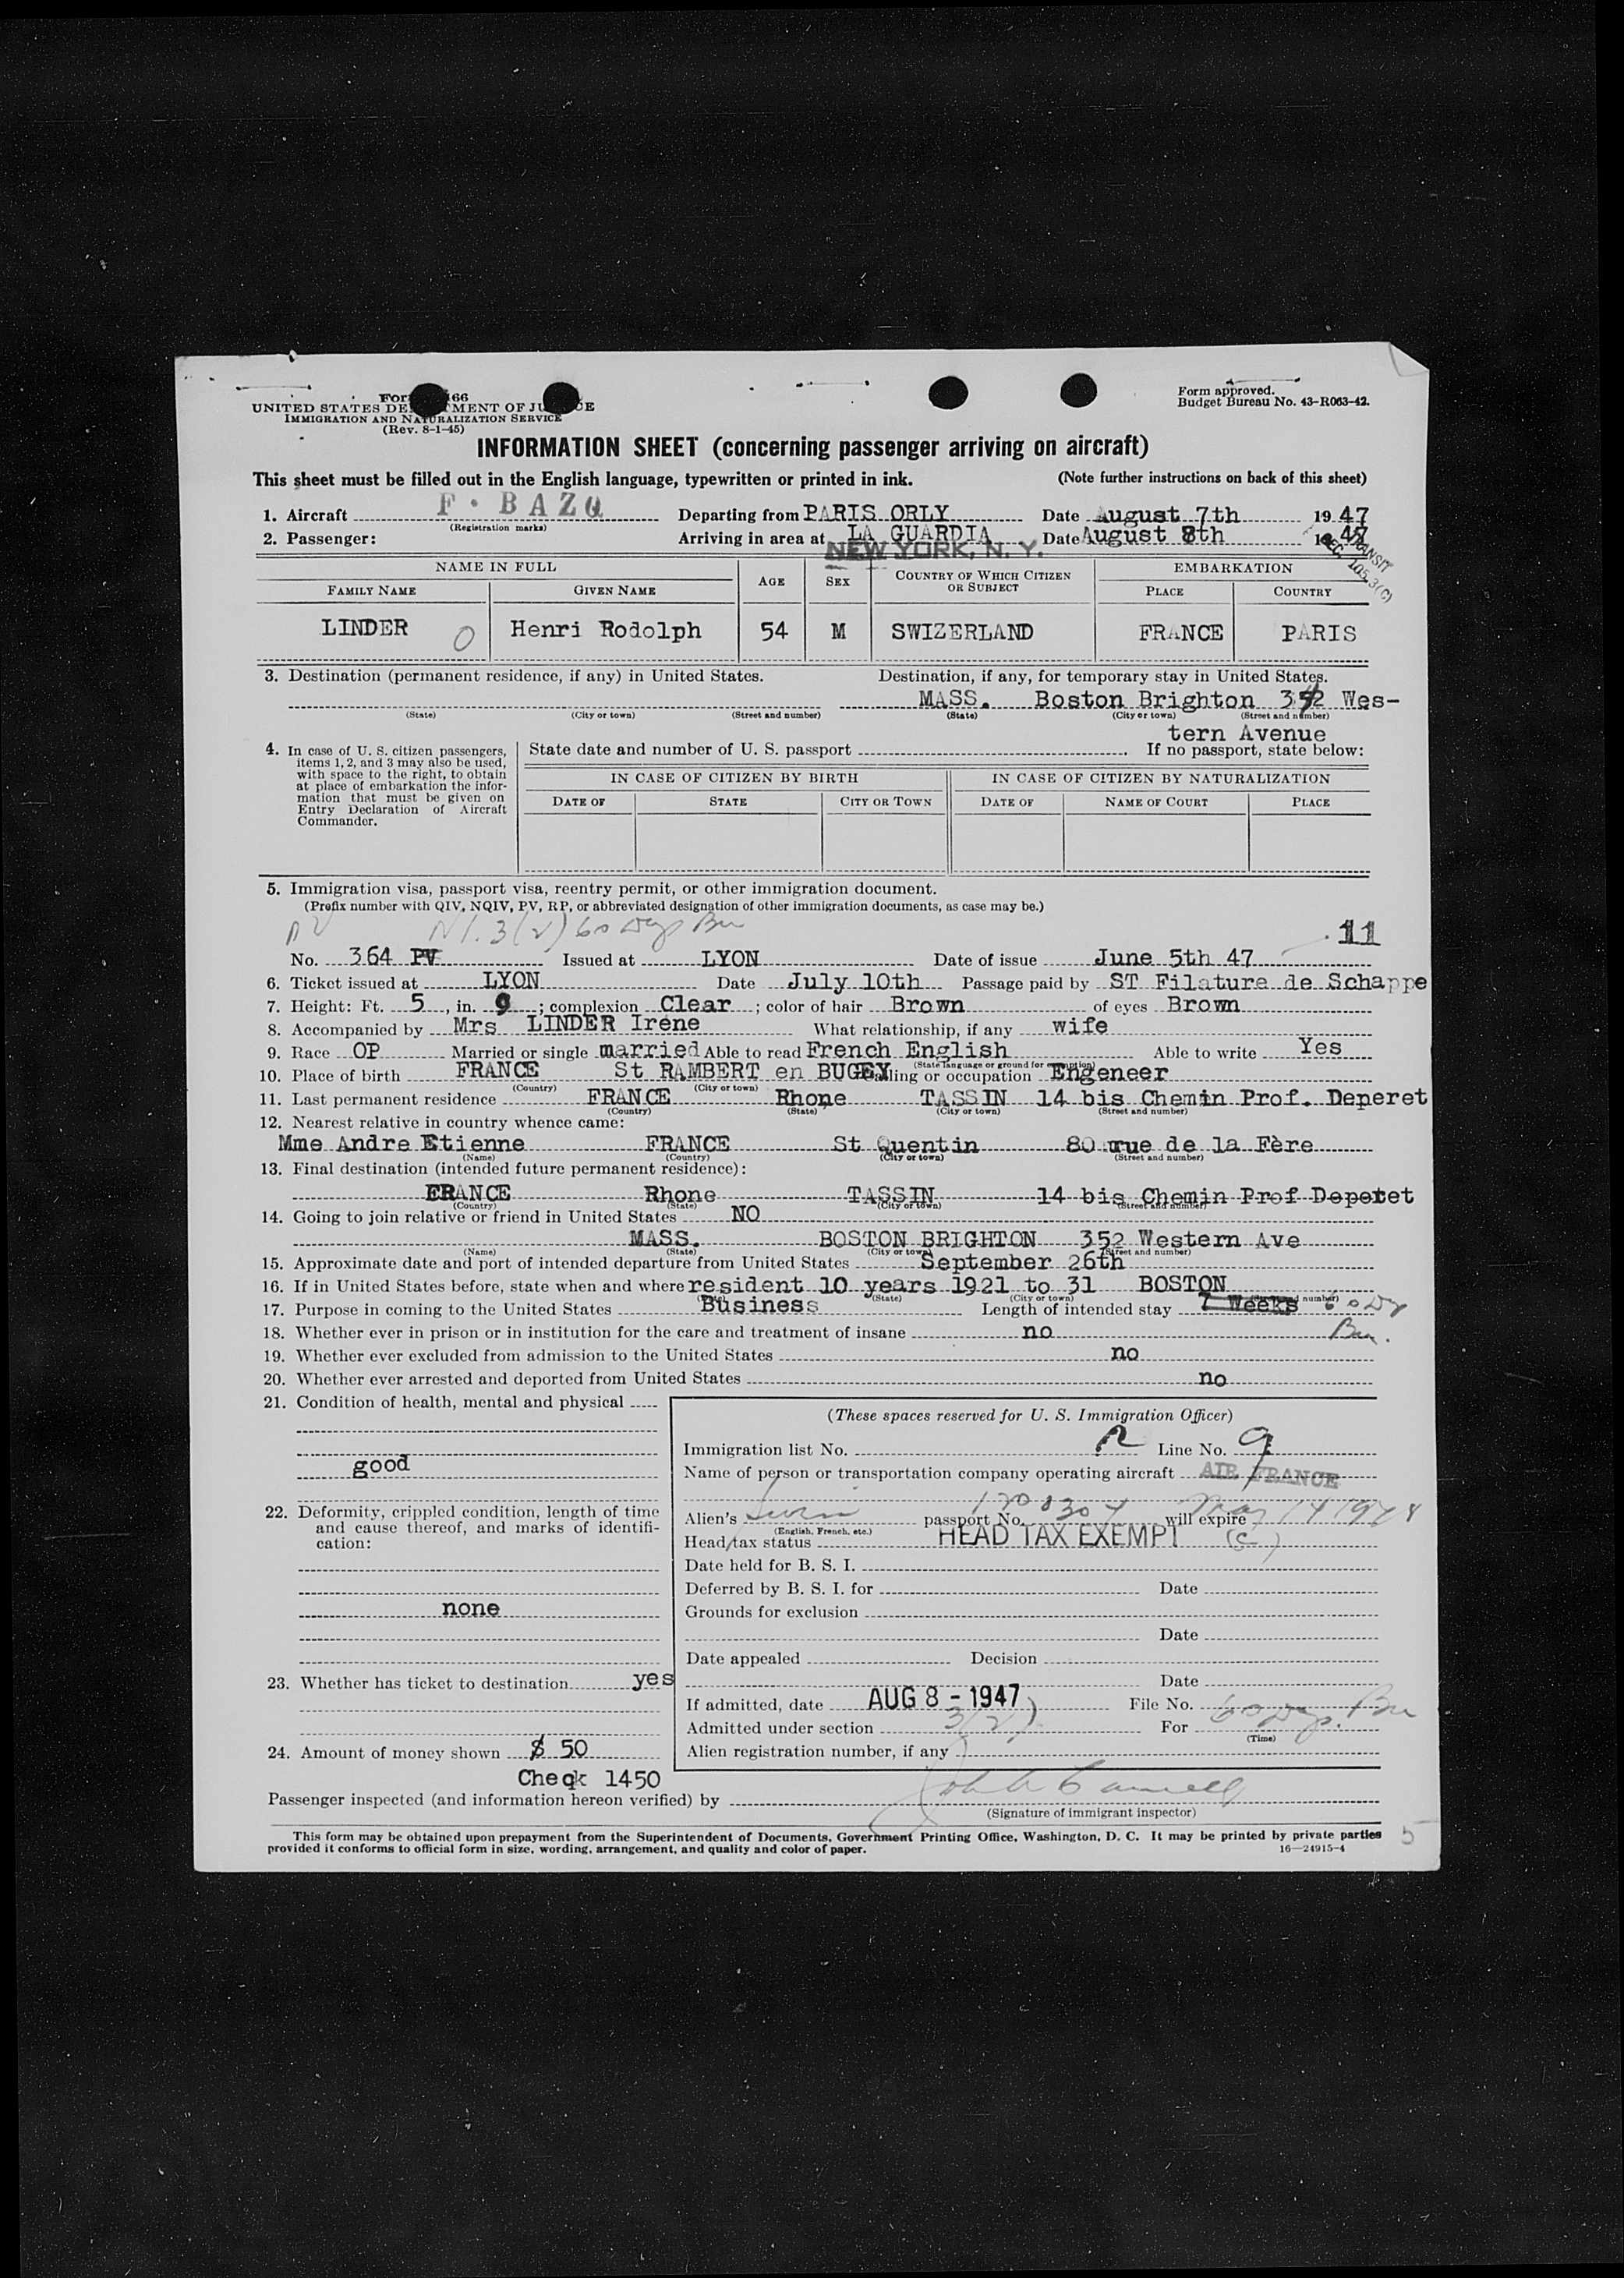 Form approved.
UNITED STATES DE MENT OF JU CE
Budget Bureau No. 43-R063-42.
IMMIGRATION AND NATURALIZATION SERVICE
(Rev. 8-1-45)
INFORMATION SHEET (concerning passenger arriving on aircraft)
This sheet must be filled out in the English language, typewritten or printed in ink. (Note further instructions on back of this sheet)
1. Aircraft F · BAZQ Departing from PARIS ORLY Date August 7th 1947
(Registration marks)
2. Passenger: Arriving in area at LA GUARDIA Date August 8th 1947
NEW YORK, N. Y.
TRANSIT
SEC. 105.3(C)
NAME IN FULL AGE SEX COUNTRY OF WHICH CITIZEN OR SUBJECT EMBARKATION
FAMILY NAME GIVEN NAME PLACE COUNTRY
LINDER 0 Henri Rodolph 54 M SWIZERLAND FRANCE PARIS
3. Destination (permanent residence, if any) in United States. Destination, if any, for temporary stay in United States.
MASS. Boston Brighton 352 Wes-
(State) (City or town) (Street and number) (State) (City or town) (Street and number)
tern Avenue
4. In case of U. S. citizen passengers, items 1, 2, and 3 may also be used, with space to the right, to obtain at place of embarkation the information that must be given on Entry Declaration of Aircraft Commander.
State date and number of U. S. passport If no passport, state below:
IN CASE OF CITIZEN BY BIRTH IN CASE OF CITIZEN BY NATURALIZATION
DATE OF STATE CITY OR TOWN DATE OF NAME OF COURT PLACE
5. Immigration visa, passport visa, reentry permit, or other immigration document.
(Prefix number with QIV, NQIV, PV, RP, or abbreviated designation of other immigration documents, as case may be.)
3(2) 60 Dys Bu
11
No. 364 PV Issued at LYON Date of issue June 5th 47
6. Ticket issued at LYON Date July 10th Passage paid by ST Filature de Schappe
7. Height: Ft. 5, in. 9; complexion Clear; color of hair Brown of eyes Brown
8. Accompanied by Mrs LINDER Irène What relationship, if any wife
9. Race OP Married or single married Able to read French English Able to write Yes
(State language or ground for exemption)
10. Place of birth FRANCE St RAMBERT en BUGEY Calling or occupation Engeneer
(Country) (City or town)
11. Last permanent residence FRANCE Rhone TASSIN 14 bis Chemin Prof. Deperet
(Country) (State) (City or town) (Street and number)
12. Nearest relative in country whence came:
Mme Andre Etienne FRANCE St Quentin 80 rue de la Fère
(Name) (Country) (City or town) (Street and number)
13. Final destination (intended future permanent residence):
FRANCE Rhone TASSIN 14 bis Chemin Prof Deperet
(Country) (State) (City or town) (Street and number)
14. Going to join relative or friend in United States NO
MASS. BOSTON BRIGHTON 352 Western Ave
(Name) (State) (City or town) (Street and number)
15. Approximate date and port of intended departure from United States September 26th
16. If in United States before, state when and where resident 10 years 1921 to 31 BOSTON
(State) (City or town) (Street and number)
17. Purpose in coming to the United States Business Length of intended stay 7 Weeks 60 Dys
Bu.
18. Whether ever in prison or in institution for the care and treatment of insane no
19. Whether ever excluded from admission to the United States no
20. Whether ever arrested and deported from United States no
21. Condition of health, mental and physical
good
22. Deformity, crippled condition, length of time and cause thereof, and marks of identification:
none
23. Whether has ticket to destination yes
24. Amount of money shown $ 50
Check 1450
(These spaces reserved for U. S. Immigration Officer)
Immigration list No. 2 Line No. 9
Name of person or transportation company operating aircraft AIR FRANCE
Alien's Swiss passport No. will expire May 14 1948
(English, French, etc.)
Head tax status HEAD TAX EXEMPT (C)
Date held for B. S. I.
Deferred by B. S. I. for Date
Grounds for exclusion
Date
Date appealed Decision
Date
If admitted, date AUG 8 - 1947 File No.
Admitted under section 3(2) For 60 Dys. Bu
(Time)
Alien registration number, if any
Passenger inspected (and information hereon verified) by
(Signature of immigrant inspector)
This form may be obtained upon prepayment from the Superintendent of Documents, Government Printing Office, Washington, D. C. It may be printed by private parties
provided it conforms to official form in size, wording, arrangement, and quality and color of paper. 16—24915-4
5